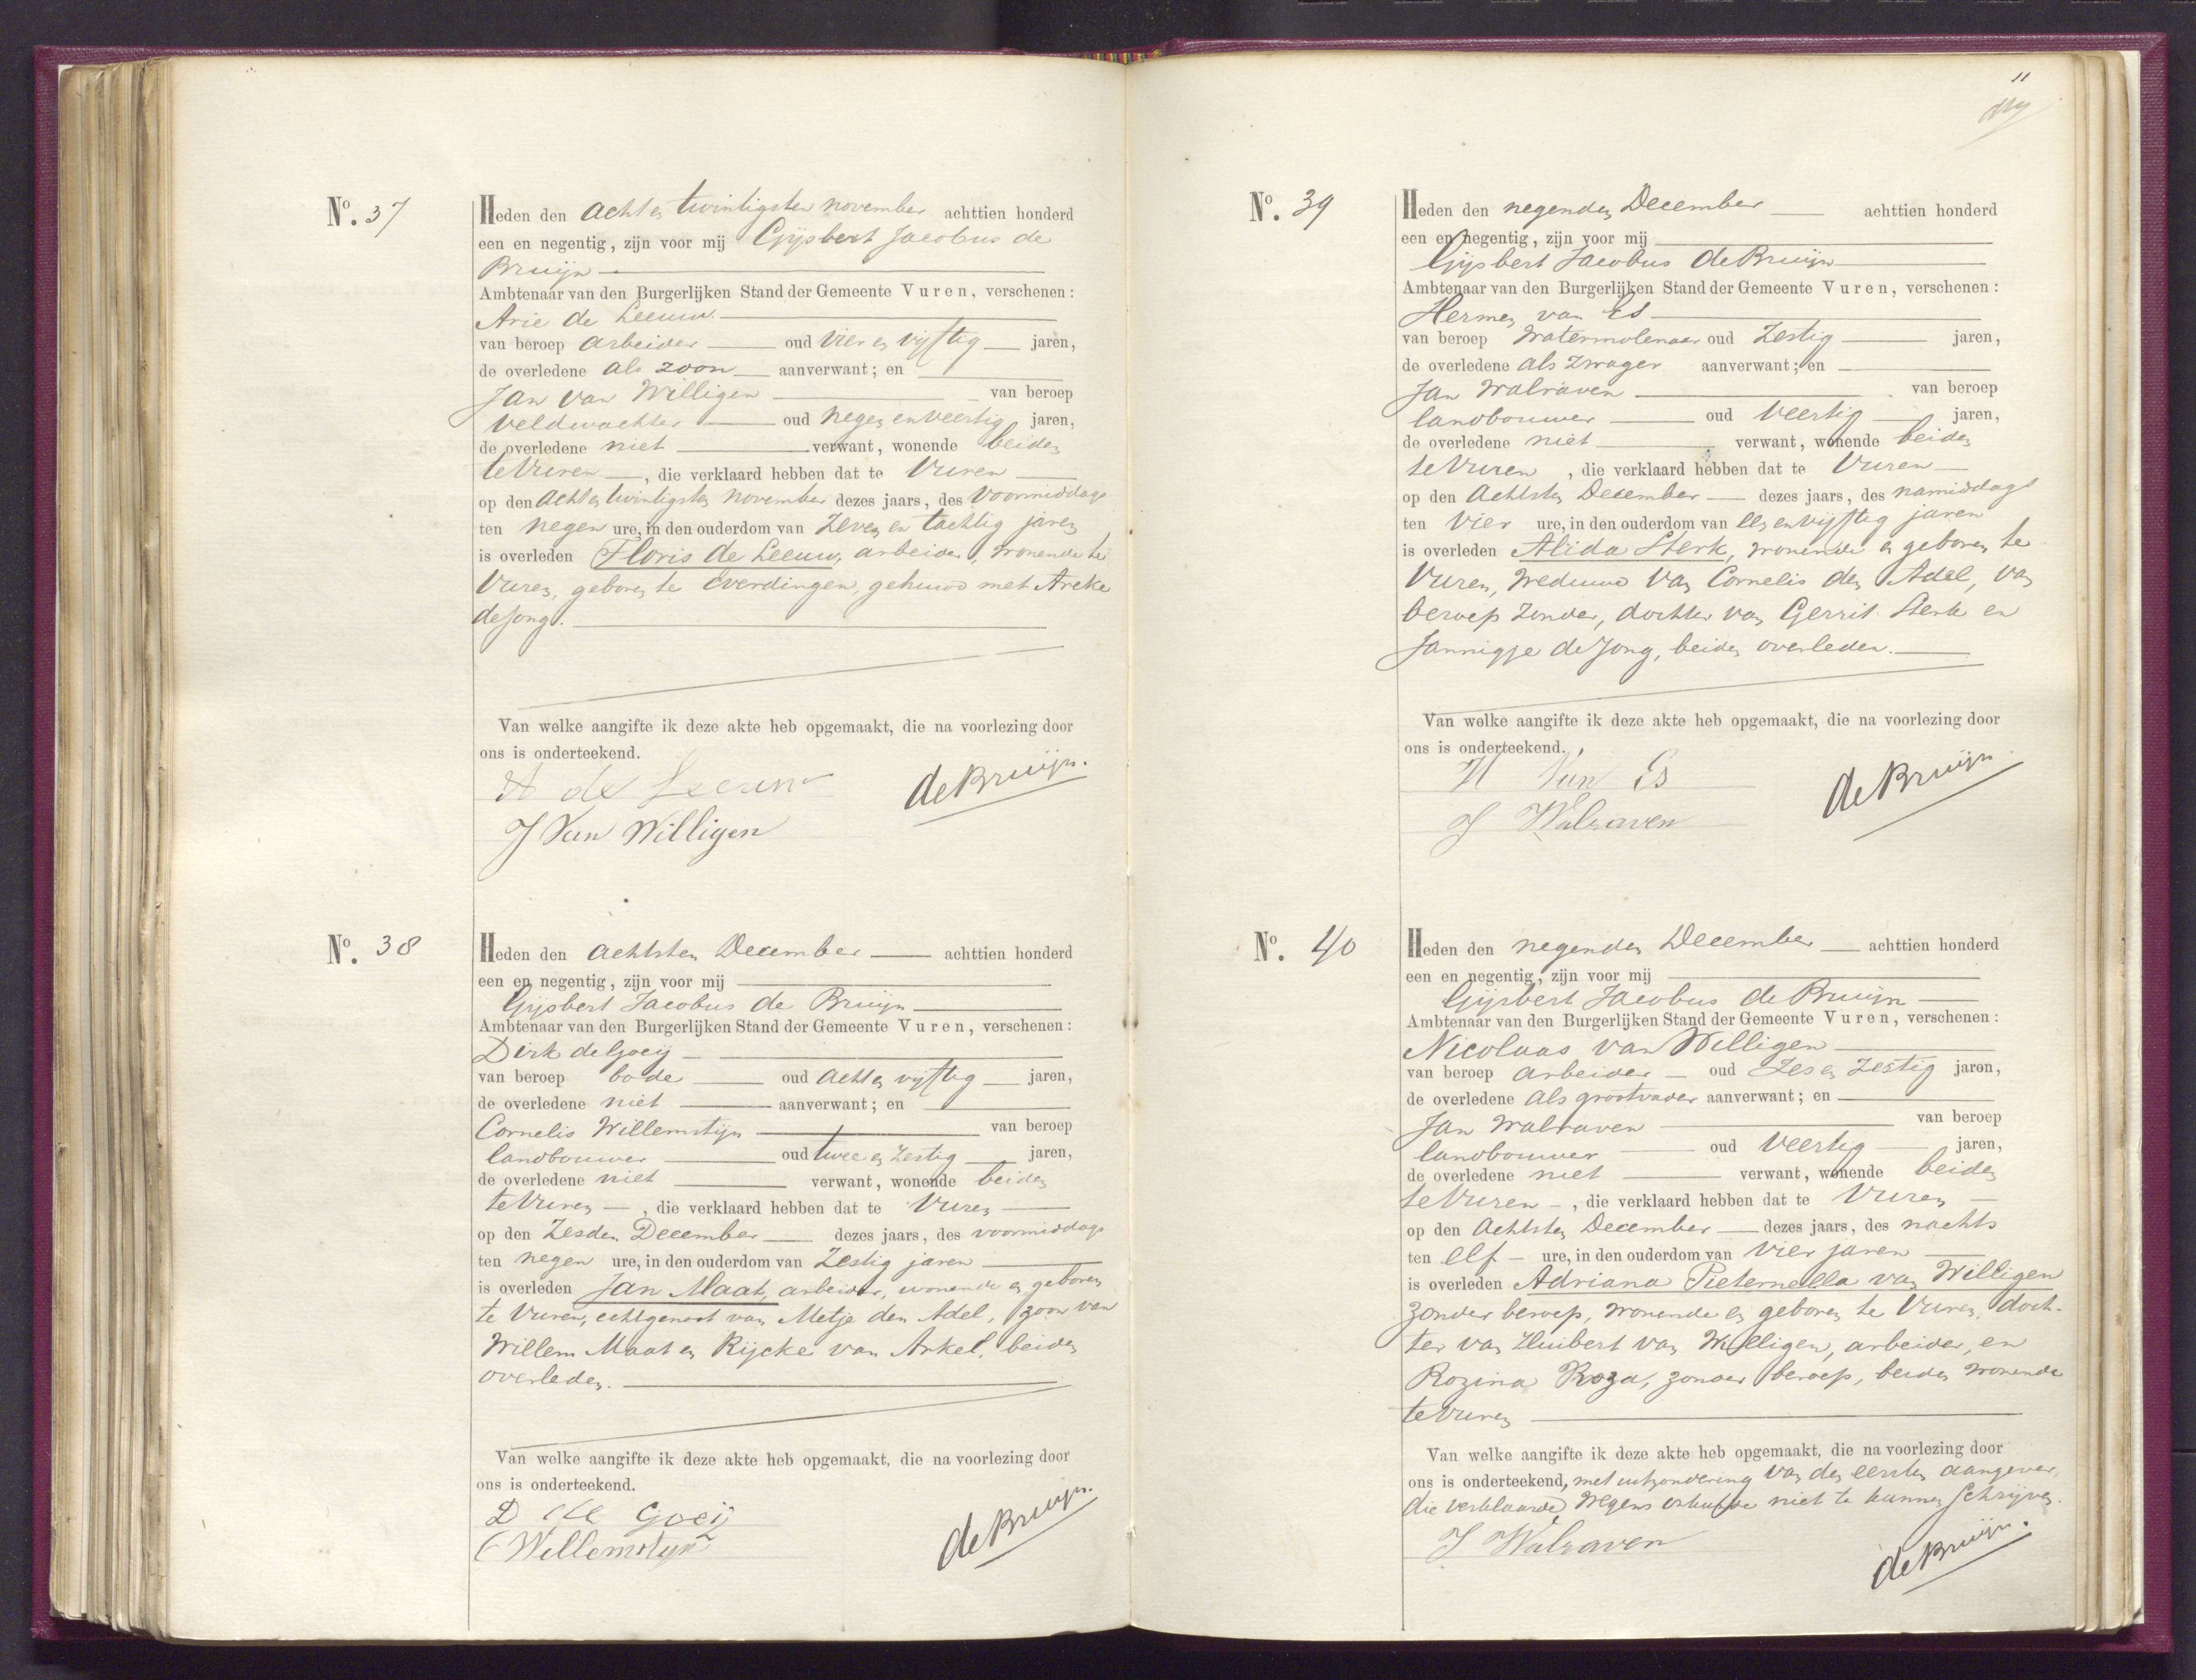 No. 37
Heden den acht en twintigsten november achttien honderd
een en negentig, zijn voor mij Gijsbert Jacobus de
Bruijn
Ambtenaar van den Burgerlijken Stand der Gemeente Vuren, verschenen:
Arie de Leeuw
van beroep arbeider oud vier en vijftig jaren,
de overledene als zoon aanverwant; en
Jan van Willigen van beroep
veldwachter oud negen en veertig jaren,
de overledene niet verwant, wonende beiden
te Vuren, die verklaard hebben dat te Vuren
op den acht en twintigsten november dezes jaars, des voormiddags
ten negen ure, in den ouderdom van zeven en tachtig jaren
is overleden Floris de Leeuw, arbeider, wonende te
Vuren, geboren te Everdingen, gehuwd met Areke
de Jong.
Van welke aangifte ik deze akte heb opgemaakt, die na voorlezing door
ons is onderteekend.
A de Leeuw
de Bruijn.
J Van Willigen
No. 38
Heden den achtsten December achttien honderd
een en negentig, zijn voor mij
Gijsbert Jacobus de Bruijn
Ambtenaar van den Burgerlijken Stand der Gemeente Vuren, verschenen:
Dirk de Goeij
van beroep bode oud acht en vijftig jaren,
de overledene niet aanverwant; en
Cornelis Willemstijn van beroep
landbouwer oud twee en zestig jaren,
de overledene niet verwant, wonende beiden
te Vuren, die verklaard hebben dat te Vuren
op den zesden December dezes jaars, des voormiddags
ten negen ure, in den ouderdom van zestig jaren
is overleden Jan Maat, arbeider, wonende en geboren
te Vuren, echtgenoot van Metje den Adel, zoon van
Willem Maat en Rijcke van Arkel, beiden
overleden.
Van welke aangifte ik deze akte heb opgemaakt, die na voorlezing door
ons is onderteekend.
D de Goeij
C Willemstyn
de Bruijn.
11
No. 39
Heden den negenden December achttien honderd
een en negentig, zijn voor mij
Gijsbert Jacobus de Bruijn
Ambtenaar van den Burgerlijken Stand der Gemeente Vuren, verschenen:
Hermen van Es
van beroep watermolenaar oud zestig jaren,
de overledene als zwager aanverwant; en
Jan Walraven van beroep
landbouwer oud veertig jaren,
de overledene niet verwant, wonende beiden
te Vuren, die verklaard hebben dat te Vuren
op den achtsten December dezes jaars, des namiddags
ten vier ure, in den ouderdom van een en vijftig jaren
is overleden Alida Sterk, wonende en geboren te
Vuren, weduwe van Cornelis den Adel, van
beroep zonder, dochter van Gerrit Sterk en
Jannigje de Jong, beiden overleden.
Van welke aangifte ik deze akte heb opgemaakt, die na voorlezing door
ons is onderteekend.
H Van Es
de Bruijn
J Walraven
No. 40
Heden den negenden December achttien honderd
een en negentig, zijn voor mij
Gijsbert Jacobus de Bruijn
Ambtenaar van den Burgerlijken Stand der Gemeente Vuren, verschenen:
Nicolaas van Willigen
van beroep arbeider oud zes en zestig jaren,
de overledene als grootvader aanverwant; en
Jan Walraven van beroep
landbouwer oud veertig jaren,
de overledene niet verwant, wonende beiden
te Vuren, die verklaard hebben dat te Vuren
op den achtsten December dezes jaars, des nachts
ten elf ure, in den ouderdom van vier jaren
is overleden Adriana Pieternella van Willigen
zonder beroep, wonende en geboren te Vuren, doch-
ter van Huibert van Willigen, arbeider, en
Rozina Roza, zonder beroep, beiden wonende
te Vuren
Van welke aangifte ik deze akte heb opgemaakt, die na voorlezing door
ons is onderteekend, met uitzondering van den eersten aangever,
die verklaarde wegens niet te kunnen schrijven.
J Walraven
de Bruijn.